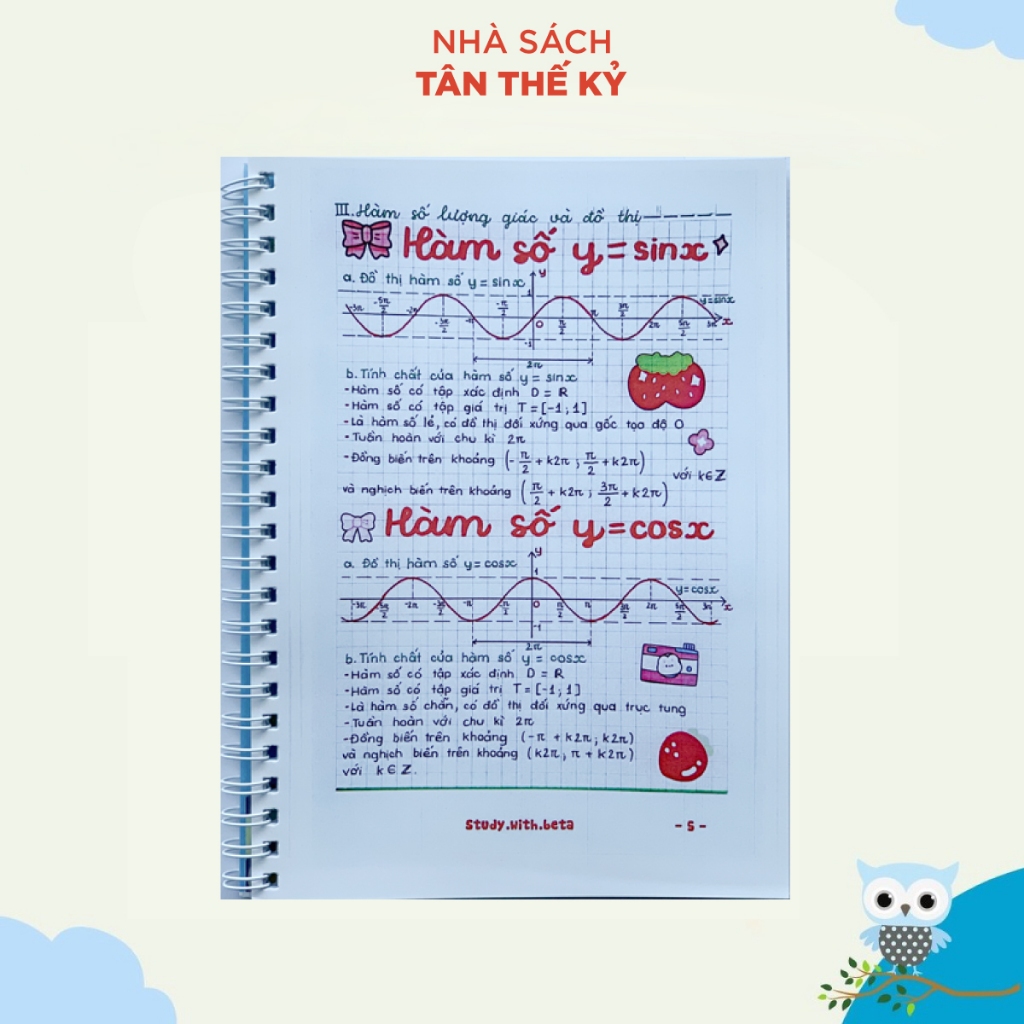 NHÀ SÁCH
TÂN THẾ KỶ
III. Hàm số lượng giác và đồ thị
Hàm số y = sinx
a. Đồ thị hàm số y = sinx
y
1
y = sinx
-3π -5π/2 -2π -3π/2 -π -π/2 O π/2 π 3π/2 2π 5π/2 3π x
-1
2π
b. Tính chất của hàm số y = sinx
- Hàm số có tập xác định D = R
- Hàm số có tập giá trị T = [-1; 1]
- Là hàm số lẻ, có đồ thị đối xứng qua gốc tọa độ O
- Tuần hoàn với chu kì 2π
- Đồng biến trên khoảng (-π/2 + k2π ; π/2 + k2π)
với k ∈ Z
và nghịch biến trên khoảng (π/2 + k2π ; 3π/2 + k2π)
Hàm số y = cosx
a. Đồ thị hàm số y = cosx
y
1
y = cosx
-3π -5π/2 -2π -3π/2 -π -π/2 O π/2 π 3π/2 2π 5π/2 3π x
-1
2π
b. Tính chất của hàm số y = cosx
- Hàm số có tập xác định D = R
- Hàm số có tập giá trị T = [-1; 1]
- Là hàm số chẵn, có đồ thị đối xứng qua trục tung
- Tuần hoàn với chu kì 2π
- Đồng biến trên khoảng (-π + k2π; k2π)
và nghịch biến trên khoảng (k2π, π + k2π)
với k ∈ Z.
Study.with.beta
- 5 -